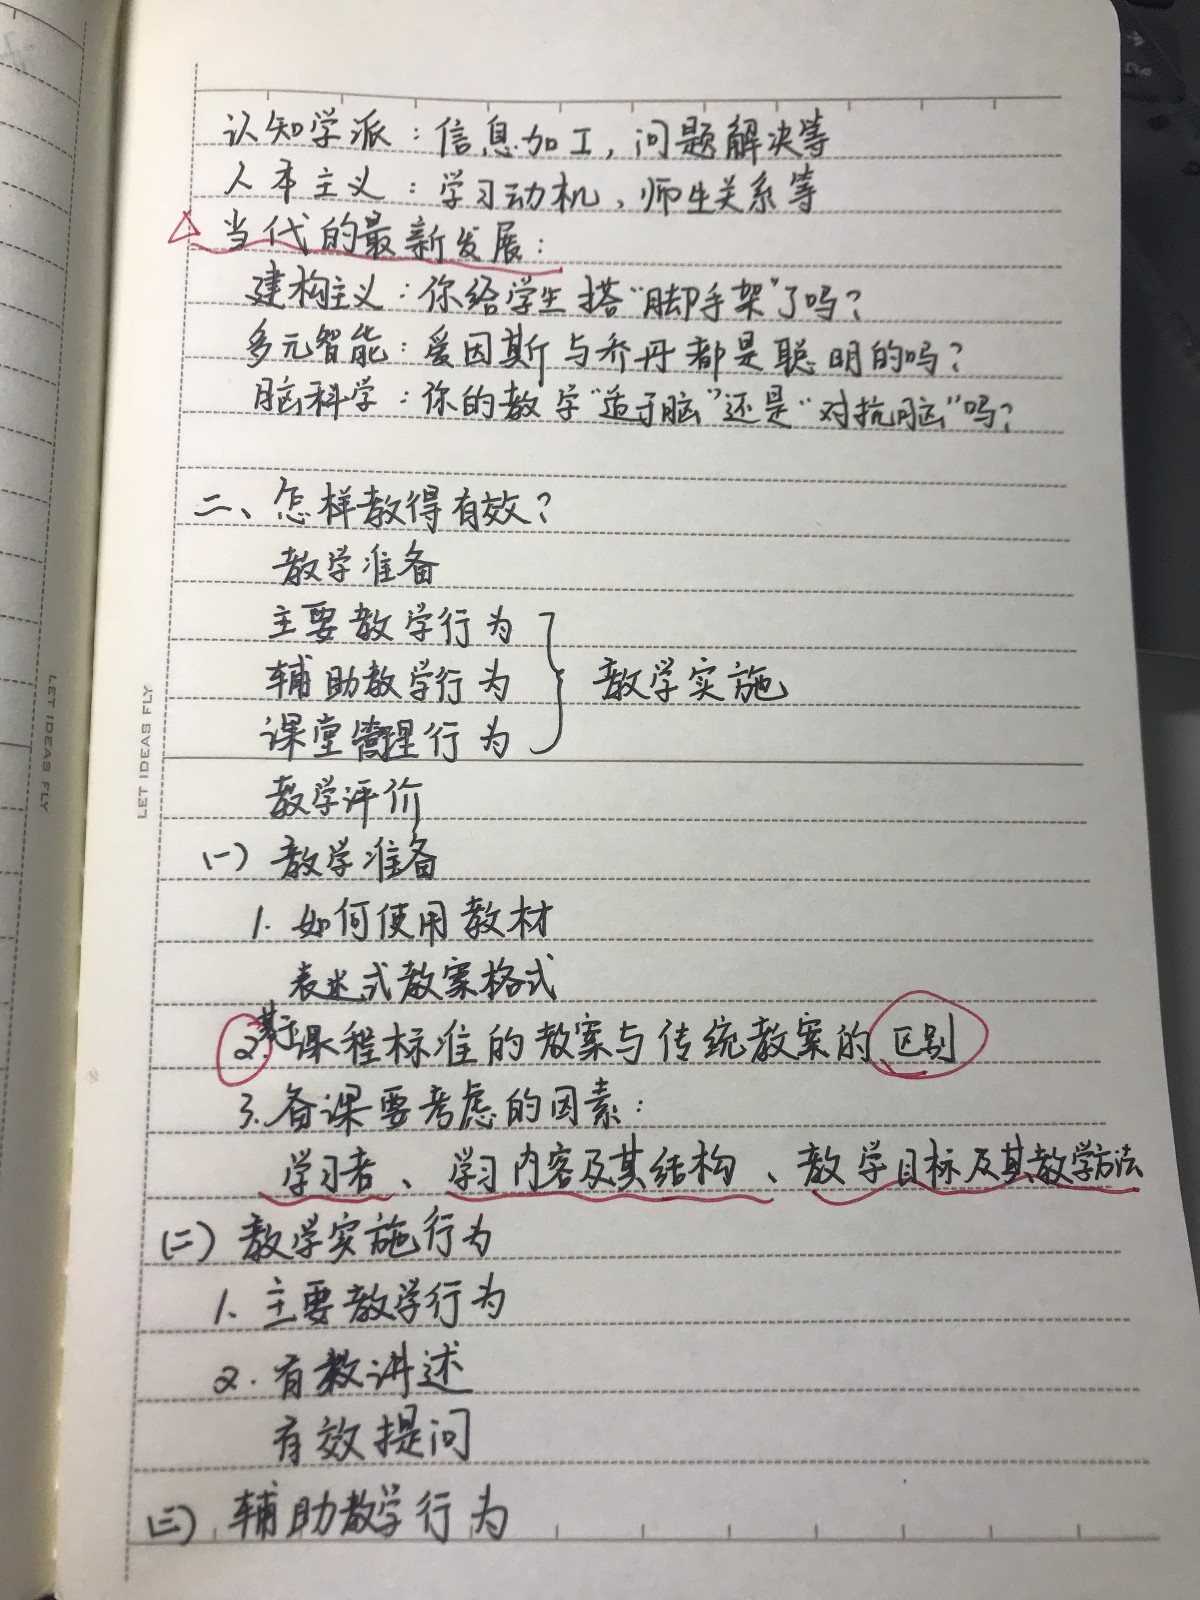 认知学派：信息加工，问题解决等
人本主义：学习动机、师生关系等
△当代的最新发展：
建构主义：你给学生搭“脚手架”了吗？
多元智能：爱因斯与乔丹都是聪明的吗？
脑科学：你的教学“适于脑”还是“对抗脑”吗？
二、怎样教得有效？
教学准备
主要教学行为
辅助教学行为 教学实施
课堂管理行为
教学评价
(一) 教学准备
1. 如何使用教材
表述式教案格式
2. 基于课程标准的教案与传统教案的区别
3. 备课要考虑的因素：
学习者、学习内容及其结构、教学目标及其教学方法
(二) 教学实施行为
1. 主要教学行为
2. 有教讲述
有效提问
(三) 辅助教学行为
LET IDEAS FLY
LET IDEAS FLY